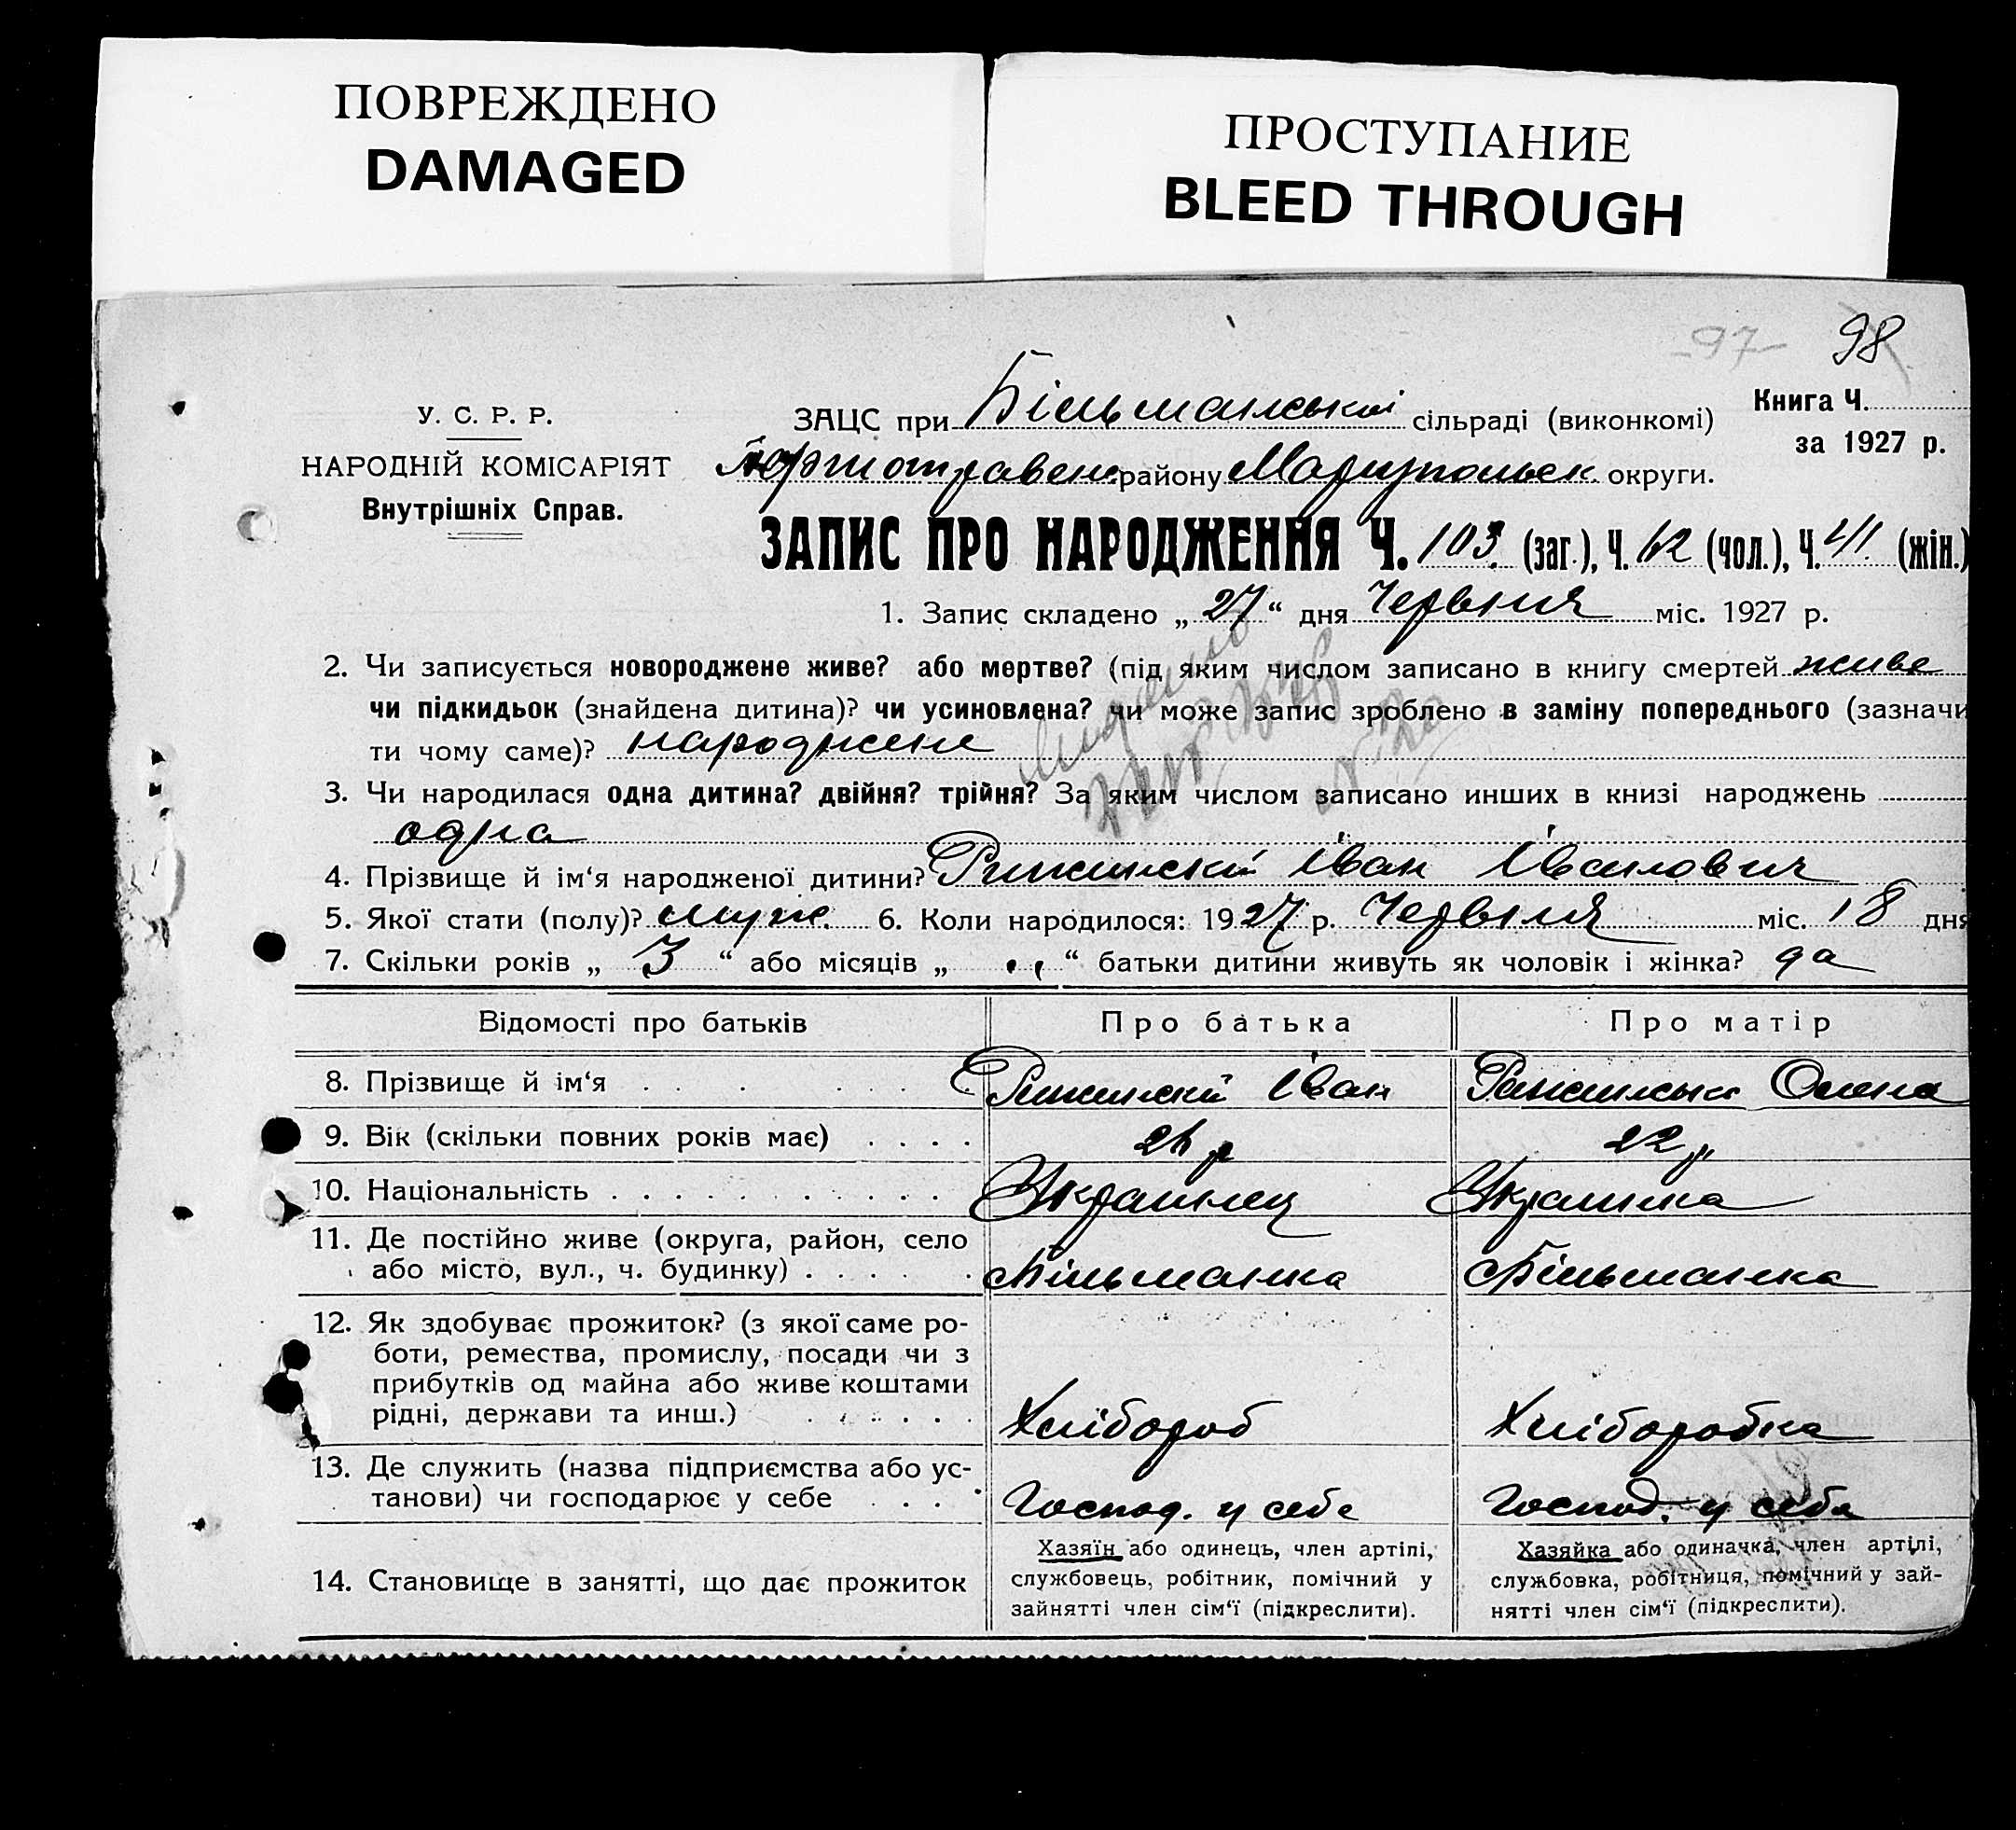 ПОВРЕЖДЕНО
DAMAGED
ПРОСТУПАНИЕ
BLEED THROUGH
97 98
У. С. Р. Р.
НАРОДНІЙ КОМІСАРІЯТ
Внутрішніх Справ.
ЗАЦС при Більманської сільраді (виконкомі)
району Маріупольськ округи.
Книга Ч.
за 1927 р.
ЗАПИС ПРО НАРОДЖЕННЯ Ч. 103 (заг.), Ч. 62 (чол.), Ч. 41 (жін.)
1. Запис складено „ 27 “ дня Червня міс. 1927 р.
2. Чи записується новороджене живе? або мертве? (під яким числом записано в книгу смертей живе
чи підкидьок (знайдена дитина)? чи усиновлена? чи може запис зроблено в заміну попереднього (зазначи
ти чому саме)? народжене
3. Чи народилася одна дитина? двійня? трійня? За яким числом записано инших в книзі народжень
одна
4. Прізвище й ім‘я народженої дитини? Іван Іванович
5. Якої стати (полу)? муж. 6. Коли народилося: 1927 р. Червня міс. 18 дня
7. Скільки років „ 3 “ або місяців „ “ батьки дитини живуть як чоловік і жінка? да
Відомості про батьків Про батька Про матір
8. Прізвище й ім‘я Іван
9. Вік (скільки повних років має) р 22 р.
10. Національність Украинец Украинка
11. Де постійно живе (округа, район, село
або місто, вул., ч. будинку) Більманка Більманка
12. Як здобуває прожиток? (з якої саме ро-
боти, ремества, промислу, посади чи з
прибутків од майна або живе коштами
рідні, держави та инш.) Хлібороб Хліборобка
13. Де служить (назва підприємства або ус-
танови) чи господарює у себе Господ. у себе Господ. у себе
14. Становище в занятті, що дає прожиток
Хазяїн або одинець, член артілі,
службовець, робітник, помічний у
зайнятті член сім‘ї (підкреслити).
Хазяйка або одиначка, член артілі,
службовка, робітниця, помічний у зай-
нятті член сім‘ї (підкреслити).